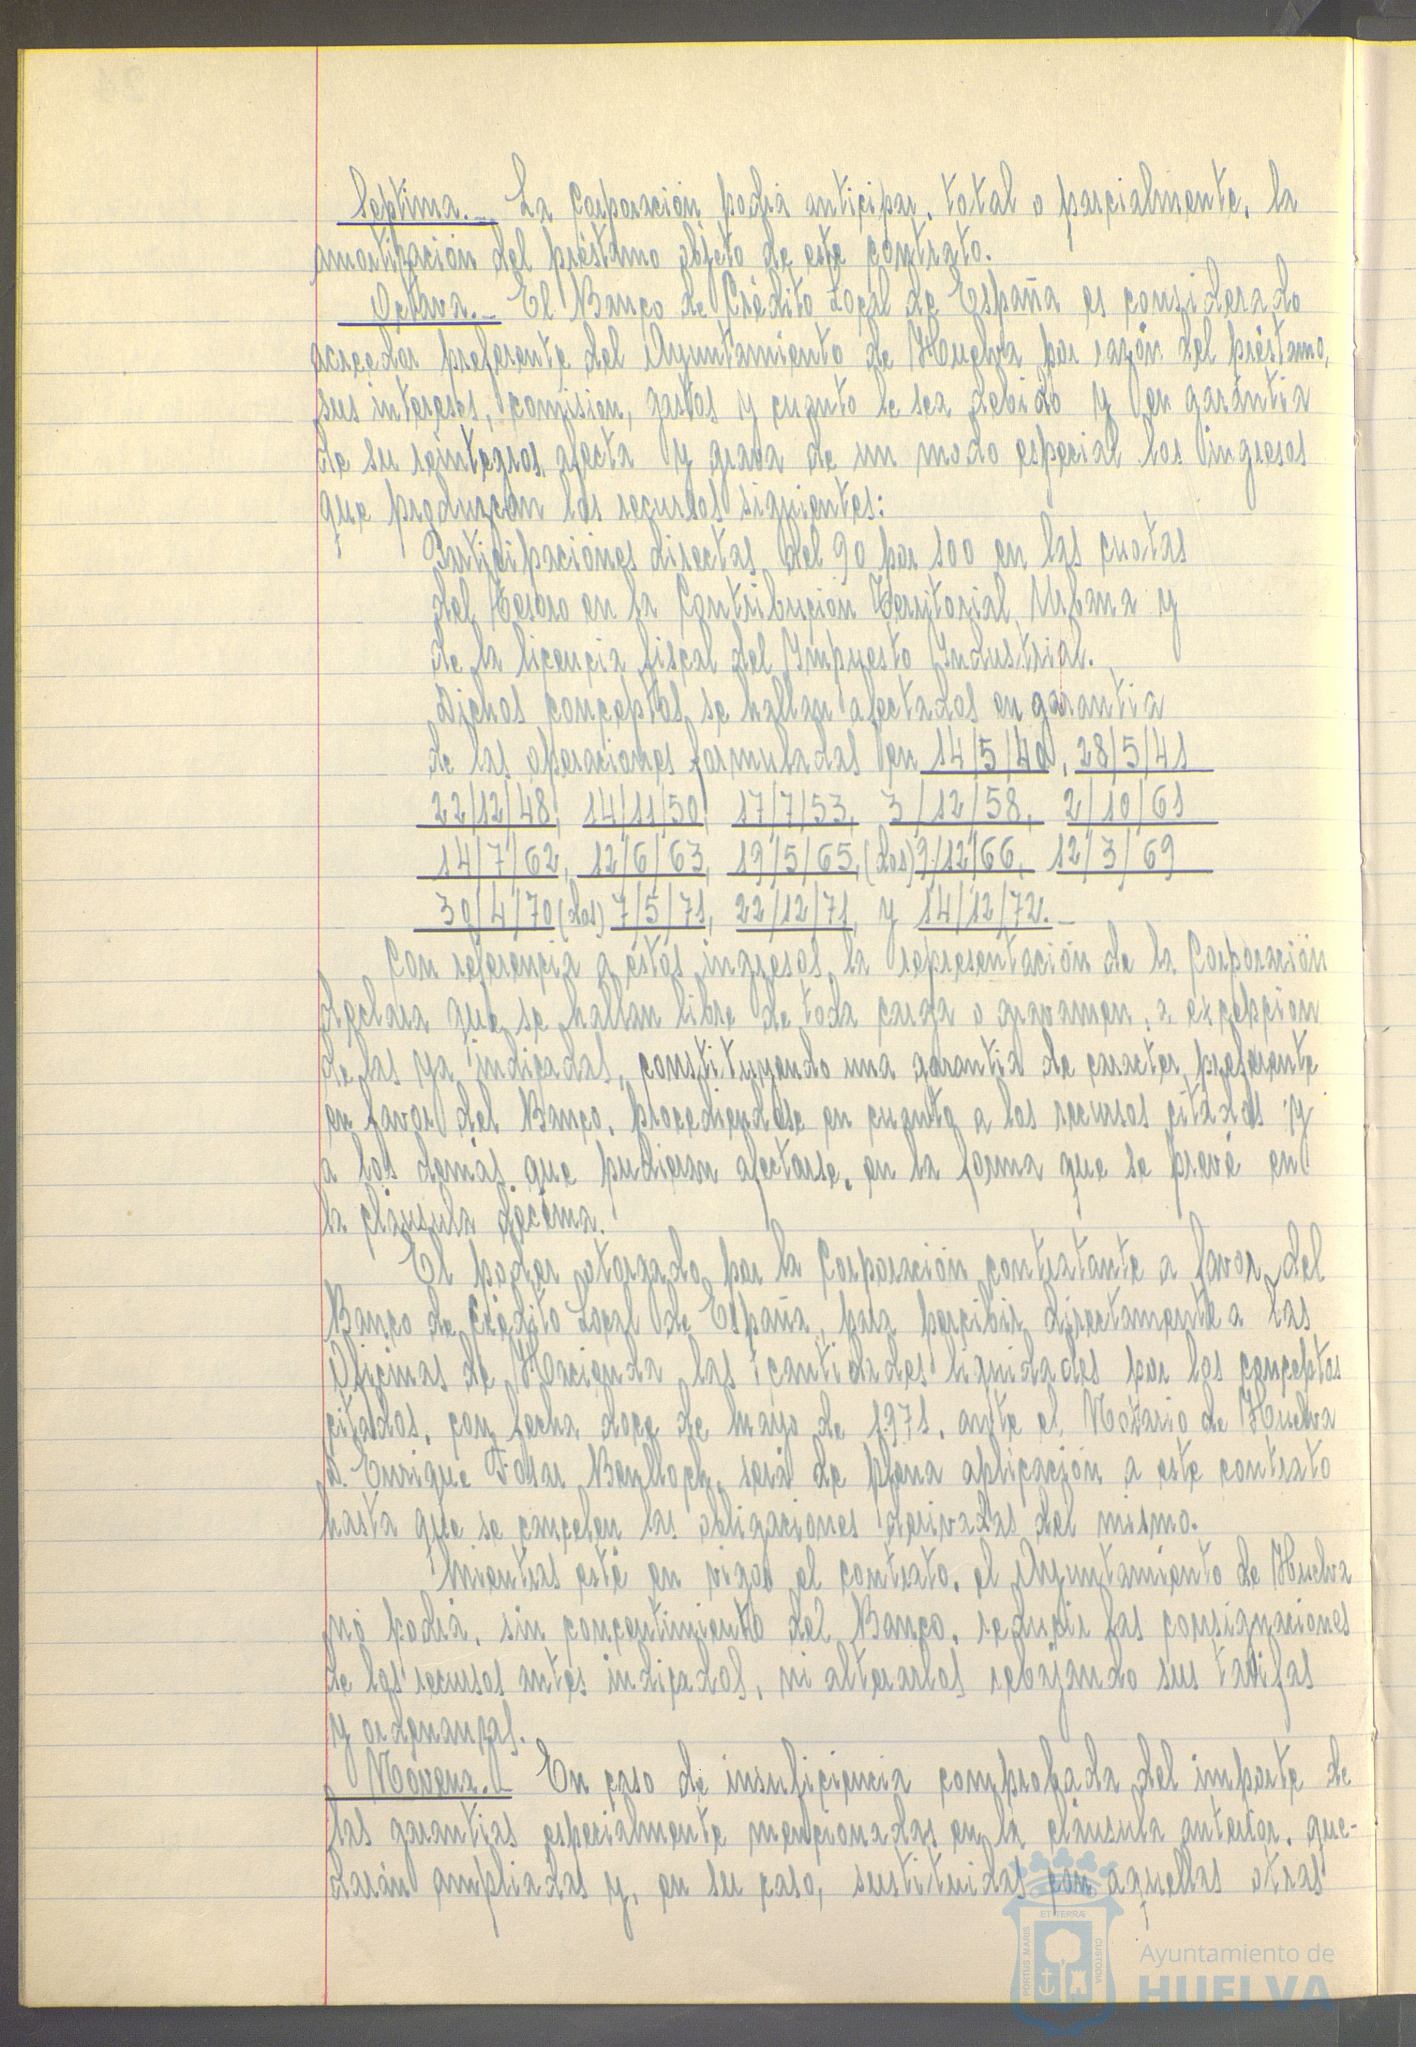 Séptima.- La Corporación podrá anticipar, total o parcialmente, la
amortización del préstamo objeto de este contrato.
Octava.- El Banco de Crédito Local de España es considerado
acreedor preferente del Ayuntamiento de Huelva por razón del préstamo,
sus intereses, comisión, gastos y cuanto le sea debido y en garantía
de su reintegros, afecta y grava de un modo especial los ingresos
que produzcan los recursos siguientes:
Participaciones directas del 90 por 100 en las cuotas
del Tesoro en la Contribución Territorial Urbana y
de la licencia fiscal del Impuesto Industrial.
Dichos conceptos se hallan afectados en garantía
de las operaciones formuladas en 14/5/40, 28/5/41
22/12/48, 14/11/50, 17/7/53, 3/12/58, 2/10/61
14/7/62, 12/6/63, 19/5/65, (dos) 9/12/66, 12/3/69
30/4/70 (dos) 7/5/71, 22/12/71, y 14/12/72.-
Con referencia a éstos ingresos, la representación de la Corporación
declara que se hallan libre de toda carga o gravamen, a excepción
de las ya indicadas, constituyendo una garantía de caracter preferente
en favor del Banco, procediendose en cuanto a los recursos citados y
a los demás que pudieran afectarse, en la forma que se prevé en
la claúsula décima.
El poder otorgado por la Corporación contratante a favor del
Banco de Crédito Local de España, para percibir directamente a las
Oficinas de Hacienda las cantidades liquidades por los conceptos
citados, con fecha doce de mayo de 1.971, ante el Notario de Huelva
D. Enrique Fosar Benlloch, será de plena aplicación a este contrato
hasta que se cancelen las obligaciones derivadas del mismo.
Mientras esté en vigor el contrato, el Ayuntamiento de Huelva
no podrá, sin concentimiento del Banco, reducir las consignaciones
de los recursos antes indicados, ni alterarlos rebajando sus tarifas
y ordenanzas.
Novena.- En caso de insuficiencia comprobada del importe de
las garantías especialmente mencionadas en la cláusula anterior, que-
darán ampliadas y, en su caso, sustituidas con aquellas otras
ET TERRÆ
PORTUS MARIS
CUSTODIA
Ayuntamiento de
HUELVA